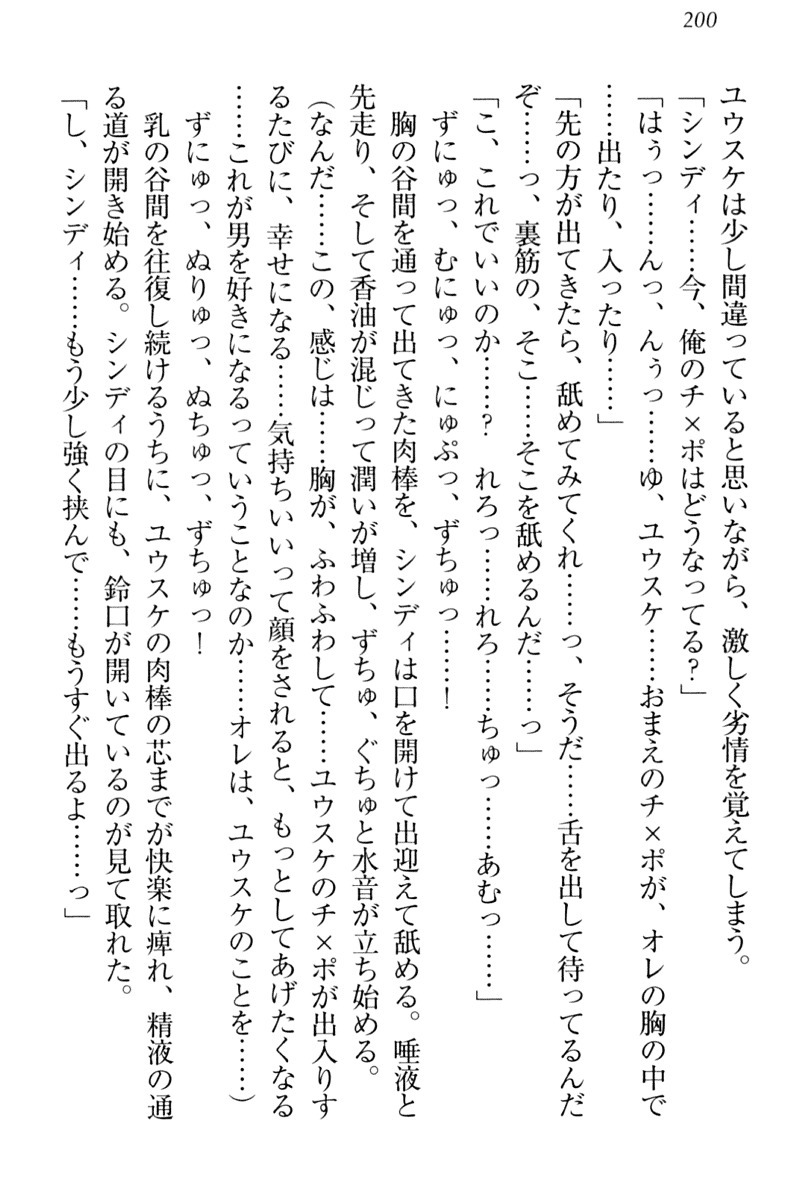 200
ユウスケは少し間違っていると思いながら、激しく劣情を覚えてしまう。
「シンディ……今、俺のチ×ポはどうなってる？」
「はぅっ……んっ、んぅっ……ゆ、ユウスケ……おまえのチ×ポが、オレの胸の中で
……出たり、入ったり……」
「先の方が出てきたら、舐めてみてくれ……っ、そうだ……舌を出して待ってるんだ
ぞ……っ、裏筋の、そこ……そこを舐めるんだ……っ」
「こ、これでいいのか……？　れろっ……れろ……ちゅっ……あむっ……」
ずにゅっ、むにゅっ、にゅぷっ、ずちゅっ……！
胸の谷間を通って出てきた肉棒を、シンディは口を開けて出迎えて舐める。唾液と
先走り、そして香油が混じって潤いが増し、ずちゅ、ぐちゅと水音が立ち始める。
（なんだ……この、感じは……胸が、ふわふわして……ユウスケのチ×ポが出入りす
るたびに、幸せになる……気持ちいいって顔をされると、もっとしてあげたくなる
……これが男を好きになるっていうことなのか……オレは、ユウスケのことを……）
ずにゅっ、ぬりゅっ、ぬちゅっ、ずちゅっ！
乳の谷間を往復し続けるうちに、ユウスケの肉棒の芯までが快楽に痺れ、精液の通
る道が開き始める。シンディの目にも、鈴口が開いているのが見て取れた。
「し、シンディ……もう少し強く挟んで……もうすぐ出るよ……っ」